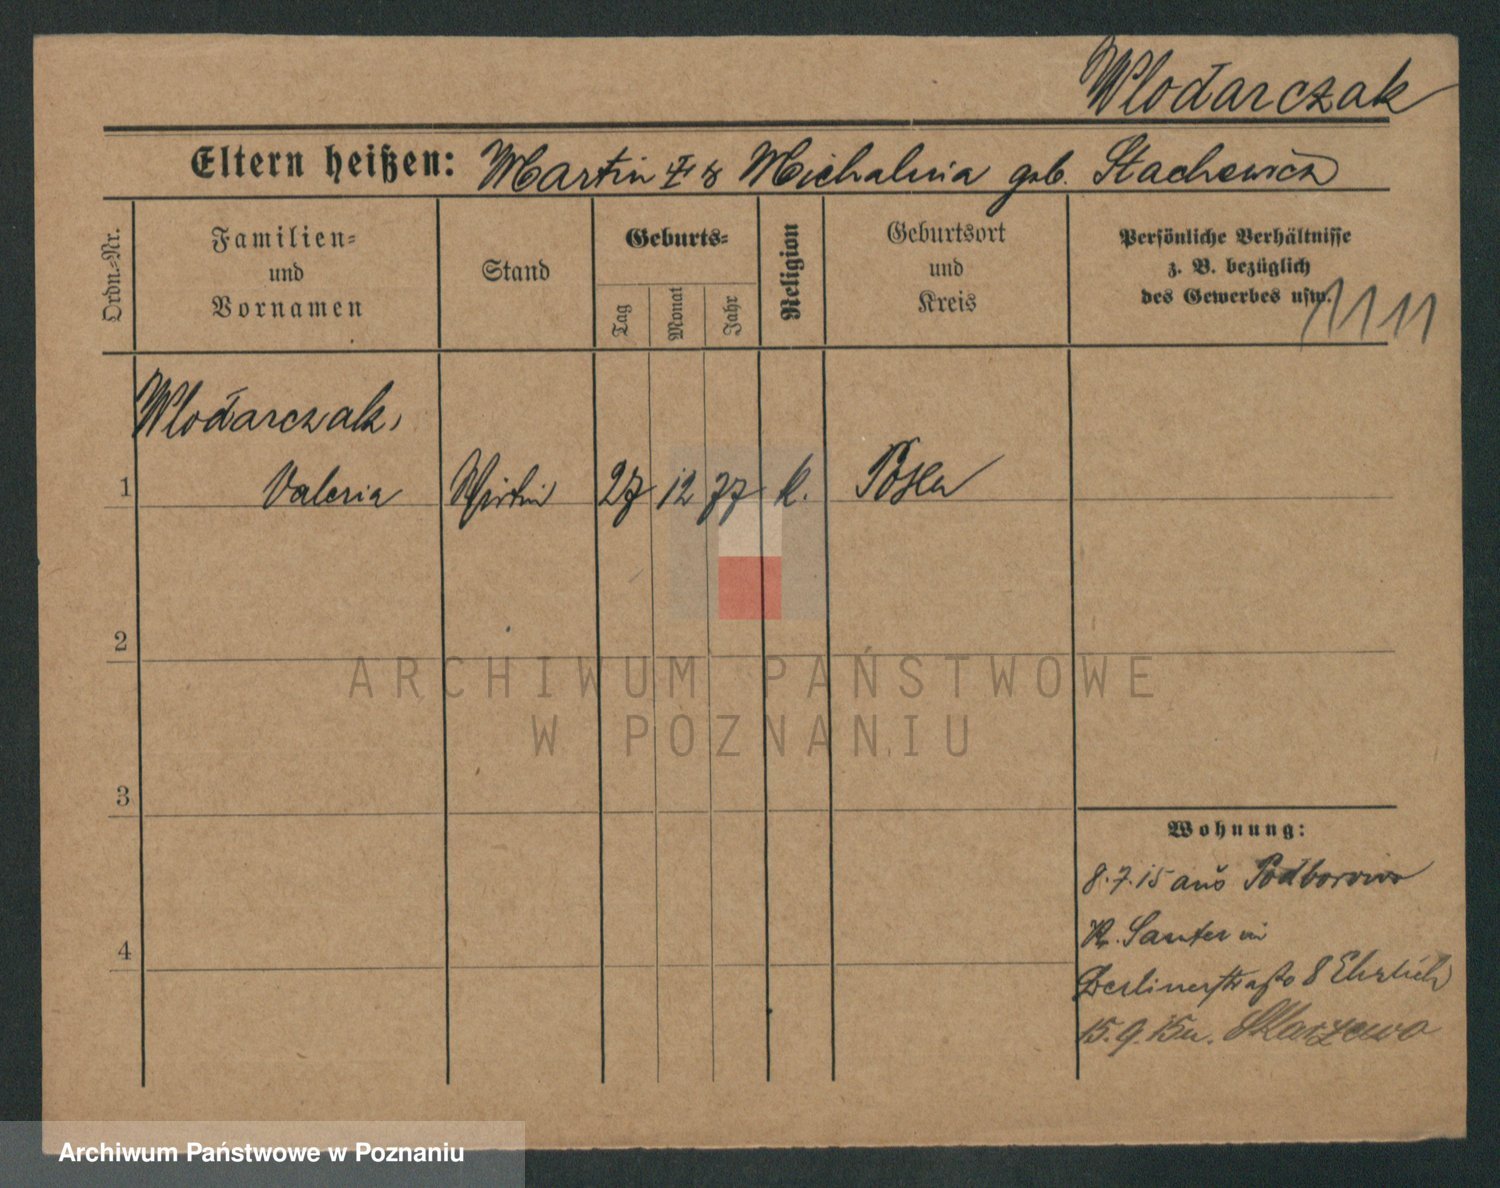 Wlodarczak
Eltern heißen: Martin u Michalina geb. Stachewicz
Ordn.=Nr.
Familien=
und
Vornamen
Stand
Geburts=
Tag
Monat
Jahr
Religion
Geburtsort
und
Kreis
Persönliche Verhältnisse
z. B. bezüglich
des Gewerbes usw.
1111
Wlodarczak,
1 Valeria Wirtin 27 12 77 k. Posen
2
3
4
ARCHIWUM PAŃSTWOWE
W POZNANIU
Wohnung:
8.7.15 aus
Kr. Samter in
Berlinerstraße 8 Ehrlich
15.9.15 n. Skarzewo
Archiwum Państwowe w Poznaniu